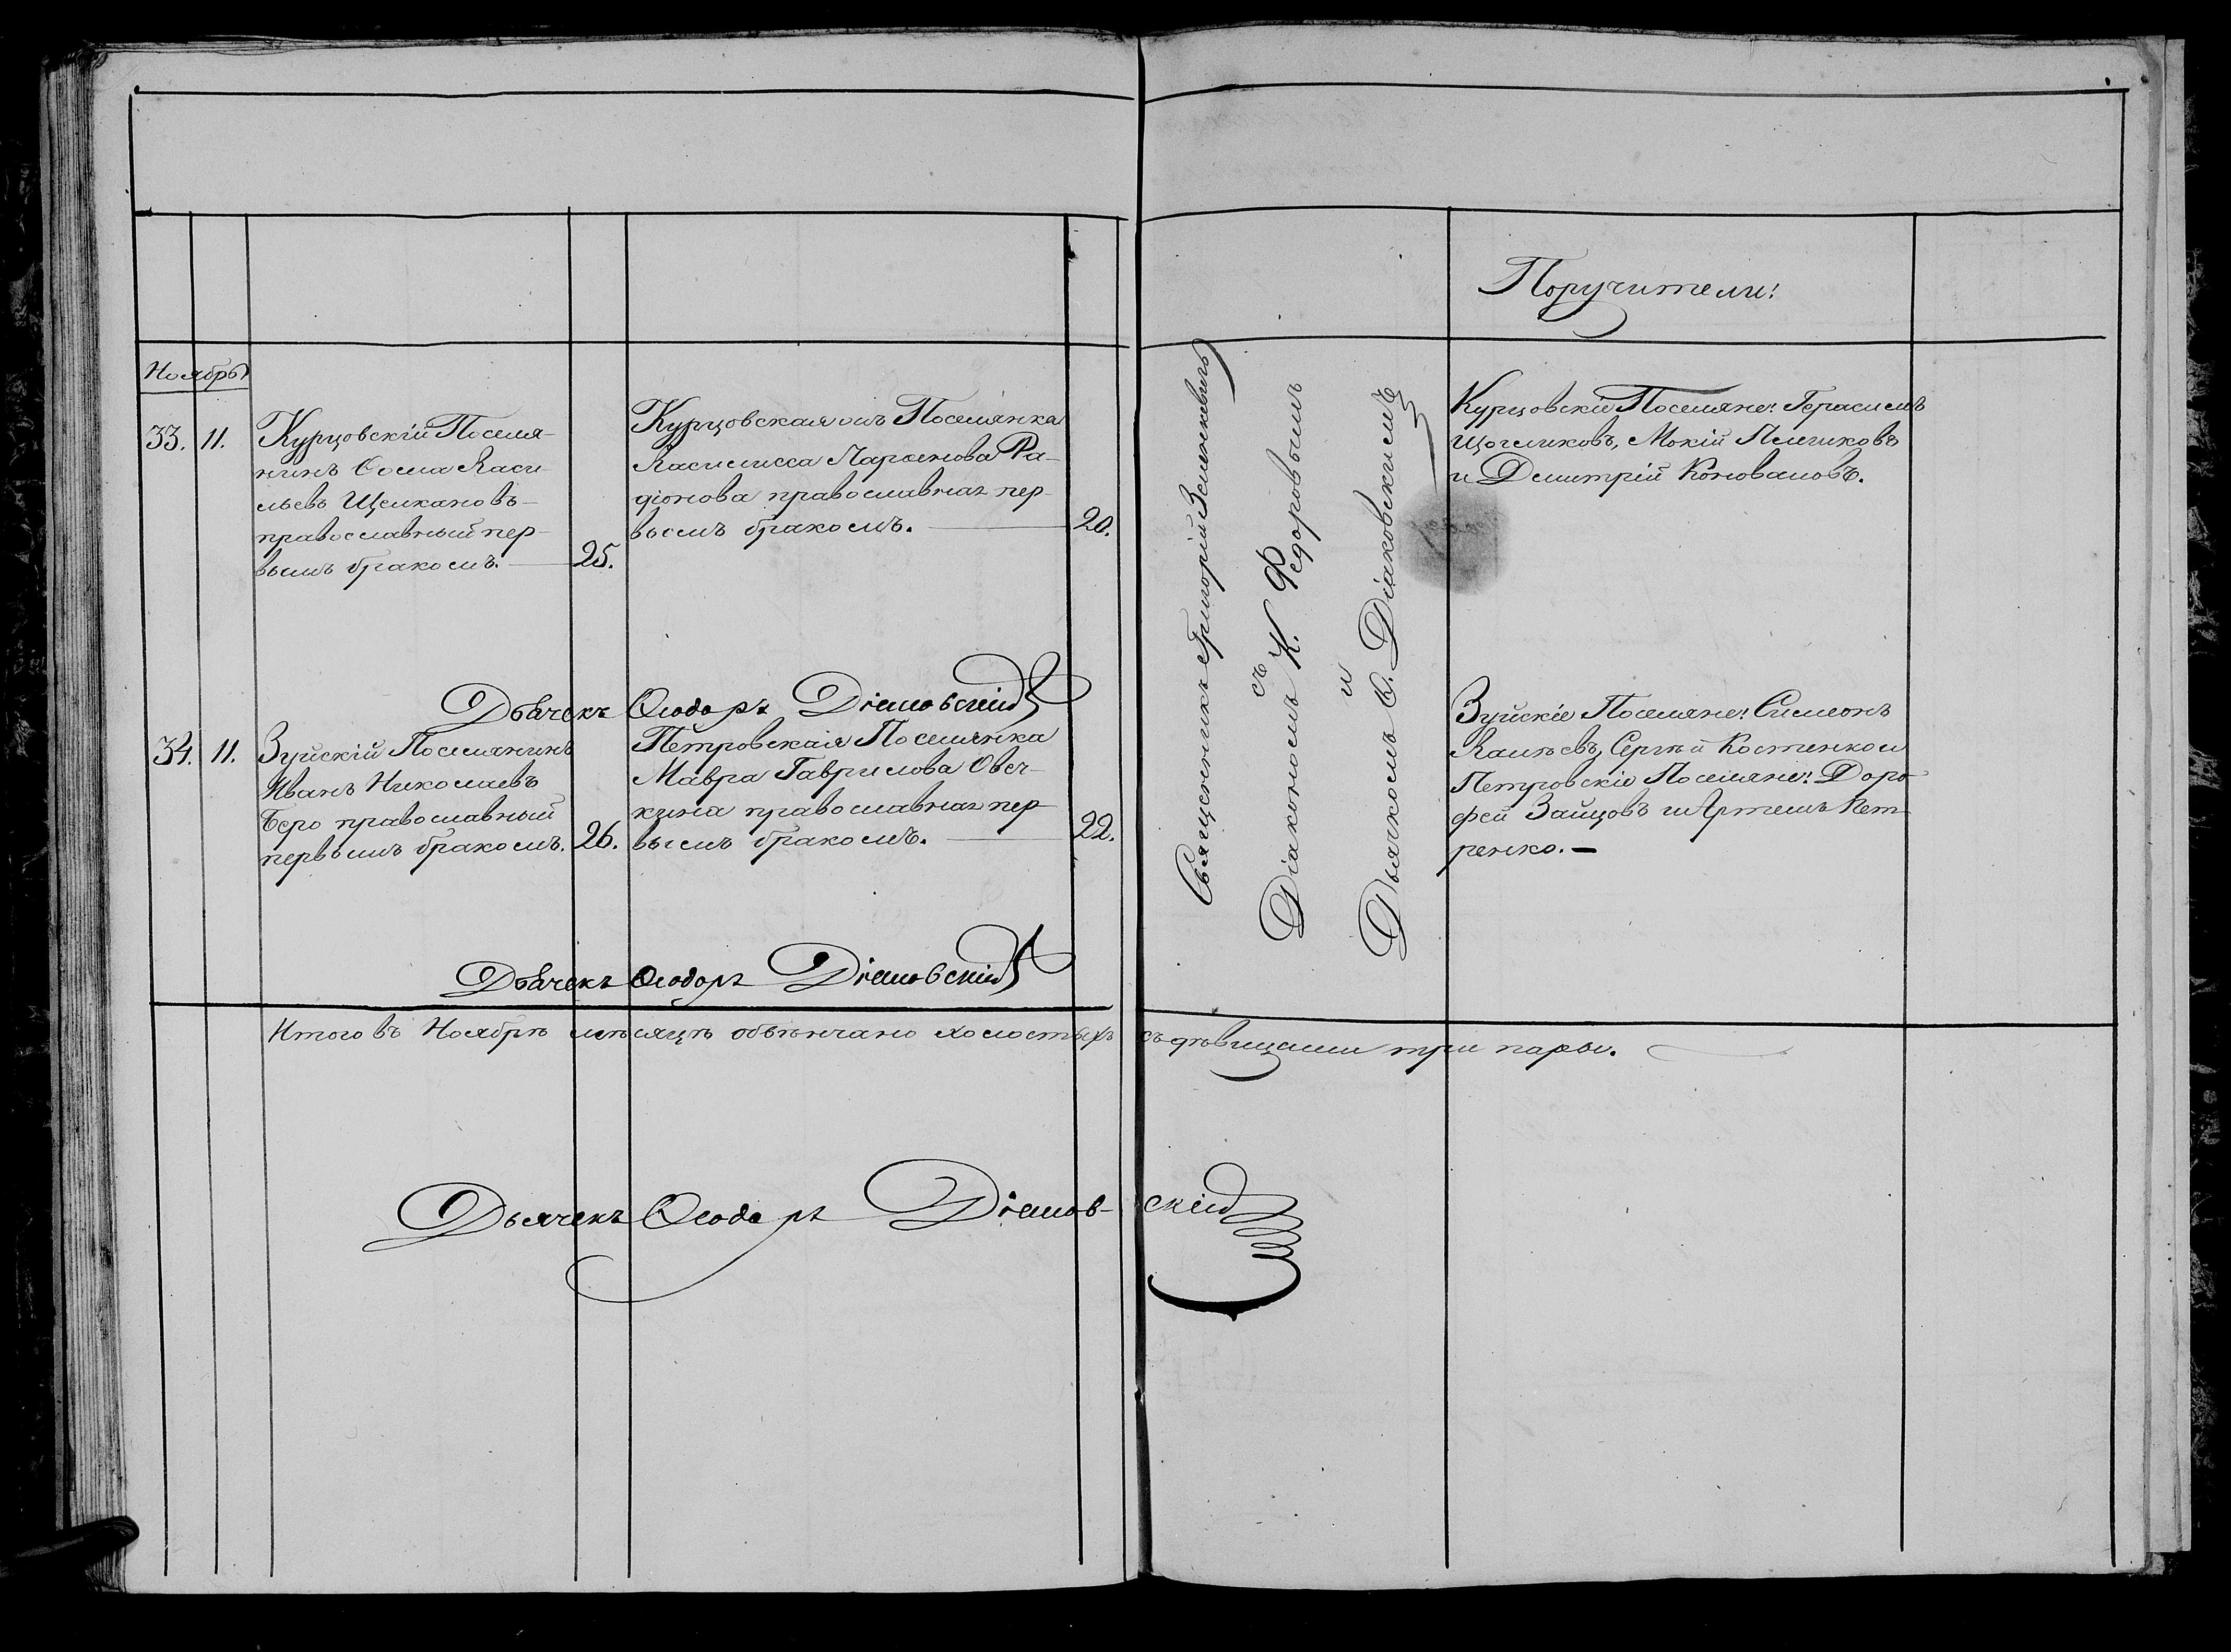 Поручители:
Ноябрь
33. 11. Курцовскій Поселя-
нинъ Ѳома Васи
льевъ Щелкановъ
православный пер-
вымъ бракомъ. 25.
Курцовская Поселянка
Василисса Парѳенова Ра-
діонова православная пер-
вымъ бракомъ. 20.
Священникъ Григорій
съ
Діакономъ К. Федоровымъ
и
Дьячкомъ Ѳ. Діаковскимъ
Курцовскіе Поселяне: Герасимъ
Щогликовъ, Мокій
и Димитрій Коноваловъ.
Дьячекъ Ѳеодоръ Діаковскій
34. 11. Зуйскій Поселянинъ
Иванъ Николаевъ
Беро православный
первымъ бракомъ. 26.
Петровская Поселянка
Мавра Гаврилова Овеч-
кина православная пер
вымъ бракомъ. 22.
Зуйскіе Поселяне: Симеонъ
Сергѣй Костенко и
Петровскіе Поселяне: Доро
фей Зайцовъ и Артемъ Пет-
ренко.
Дьячекъ Ѳеодоръ Діаковскій
Итого въ Ноябрѣ мѣсяцѣ обвѣнчано холостыхъ съ дѣвицами три пары.
Дьячекъ Ѳеодоръ Діаков-скій